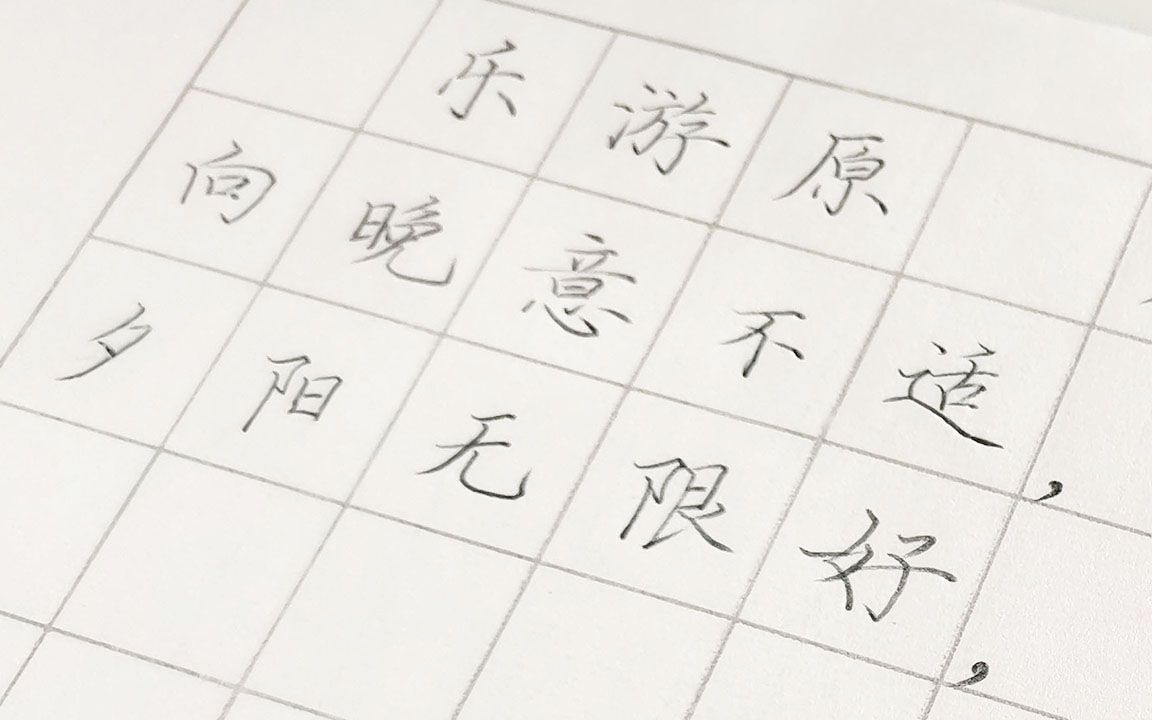 乐游原
向晚意不适，
夕阳无限好，